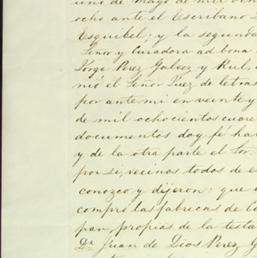 uno de Mayo de mil
ocho ante el Escribano
Esquibel; y la segunda
Señor y Curadora ad bona
Jorge Perez Galvez y Rul,
nió el Señor Juez de letras
por ante mi en veinte y
de mil ochocientos cuare
documentos doy fé ha
y de la otra parte el Sor.
por si, vecinos todos de es
conozco y dijeron: que
compró las fabricas de
pan, propias de la testa
Da. Juan de Dios Perez G